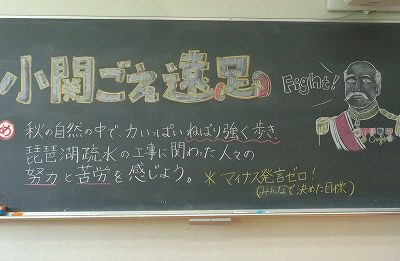 小関ごえ遠足
Fight!
め 秋の自然の中で、力いっぱいねばり強く歩き
琵琶湖疏水の工事に関わった人々の
努力と苦労を感じよう。 ＊マイナス発言ゼロ！
(みんなで決めた目標)